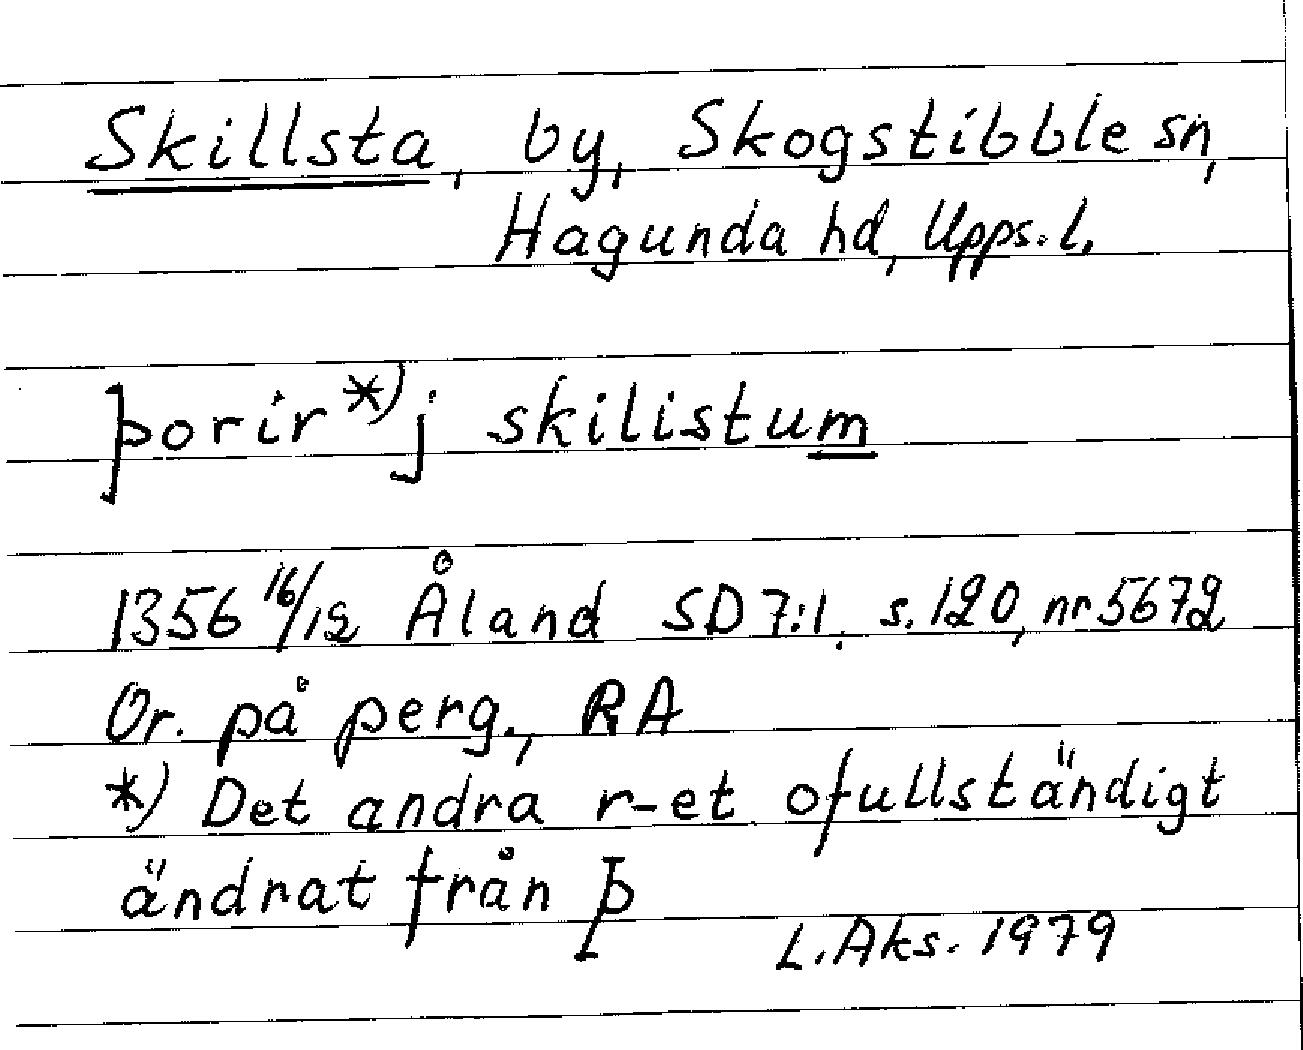 Skillsta, by, Skogstibble sn,
Hagunda hd, Upps. l.
þorir *) j skilistum
1356 16/12 Åland SD 7:1, s. 120, nr 5672
Or. på perg., RA
*) Det andra r-et ofullständigt
ändrat från þ
L. Aks. 1979